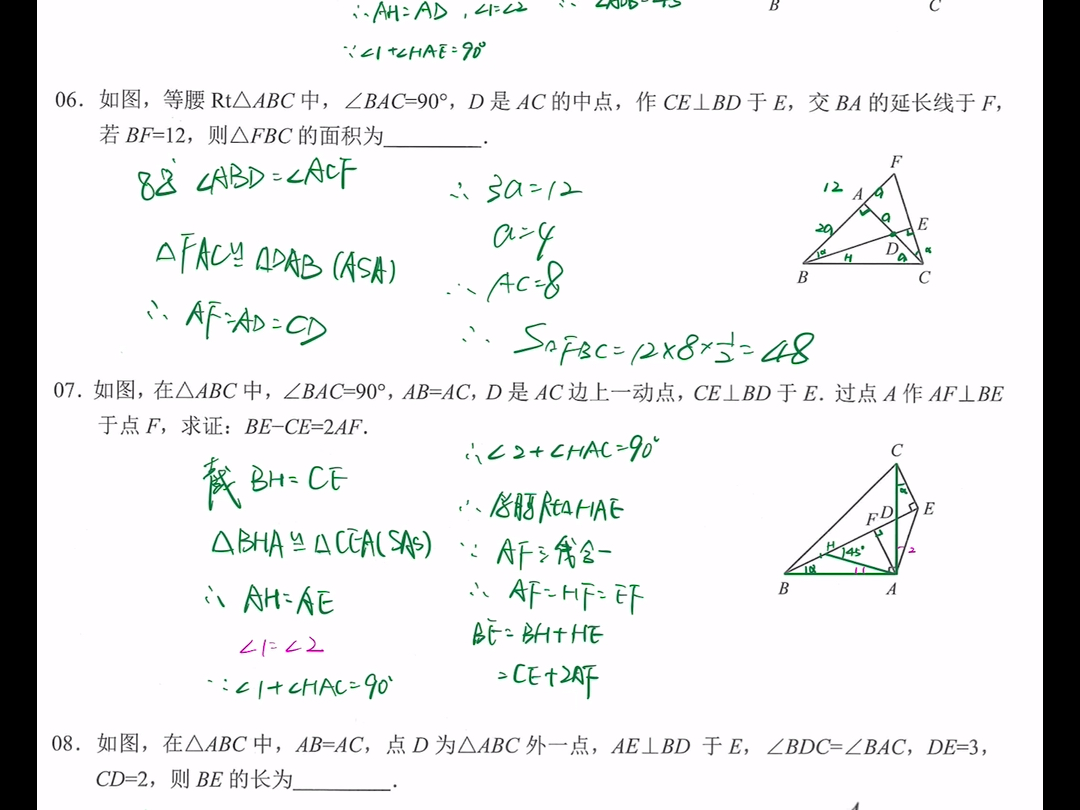 ∴AH=AD , ∠1=∠2 ∴ ∠ADB=45
B C
∵∠1+∠HAE=90°
06. 如图，等腰 Rt△ABC 中，∠BAC=90°，D 是 AC 的中点，作 CE⊥BD 于 E，交 BA 的延长线于 F，
若 BF=12，则△FBC 的面积为_________.
∠ABD=∠ACF
△FAC≌△DAB (ASA)
∴ AF=AD=CD
∴ 3a=12
a=4
∴ AC=8
∴ S△FBC=12×8×1/2=48
F
12 A a
2a a E
D
B α H a C α
07. 如图，在△ABC 中，∠BAC=90°，AB=AC，D 是 AC 边上一动点，CE⊥BD 于 E．过点 A 作 AF⊥BE
于点 F，求证：BE−CE=2AF．
截 BH=CE
△BHA≌△CEA(SAS)
∴ AH=AE
∠1=∠2
∵∠1+∠HAC=90°
∴∠2+∠HAC=90°
∴ 等腰Rt△HAE
∵ AF三线合一
∴ AF=HF=EF
BE=BH+HE
=CE+2AF
C
α
F D E
H 45° 2
α 1
B A
08. 如图，在△ABC 中，AB=AC，点 D 为△ABC 外一点，AE⊥BD 于 E，∠BDC=∠BAC，DE=3，
CD=2，则 BE 的长为_________.